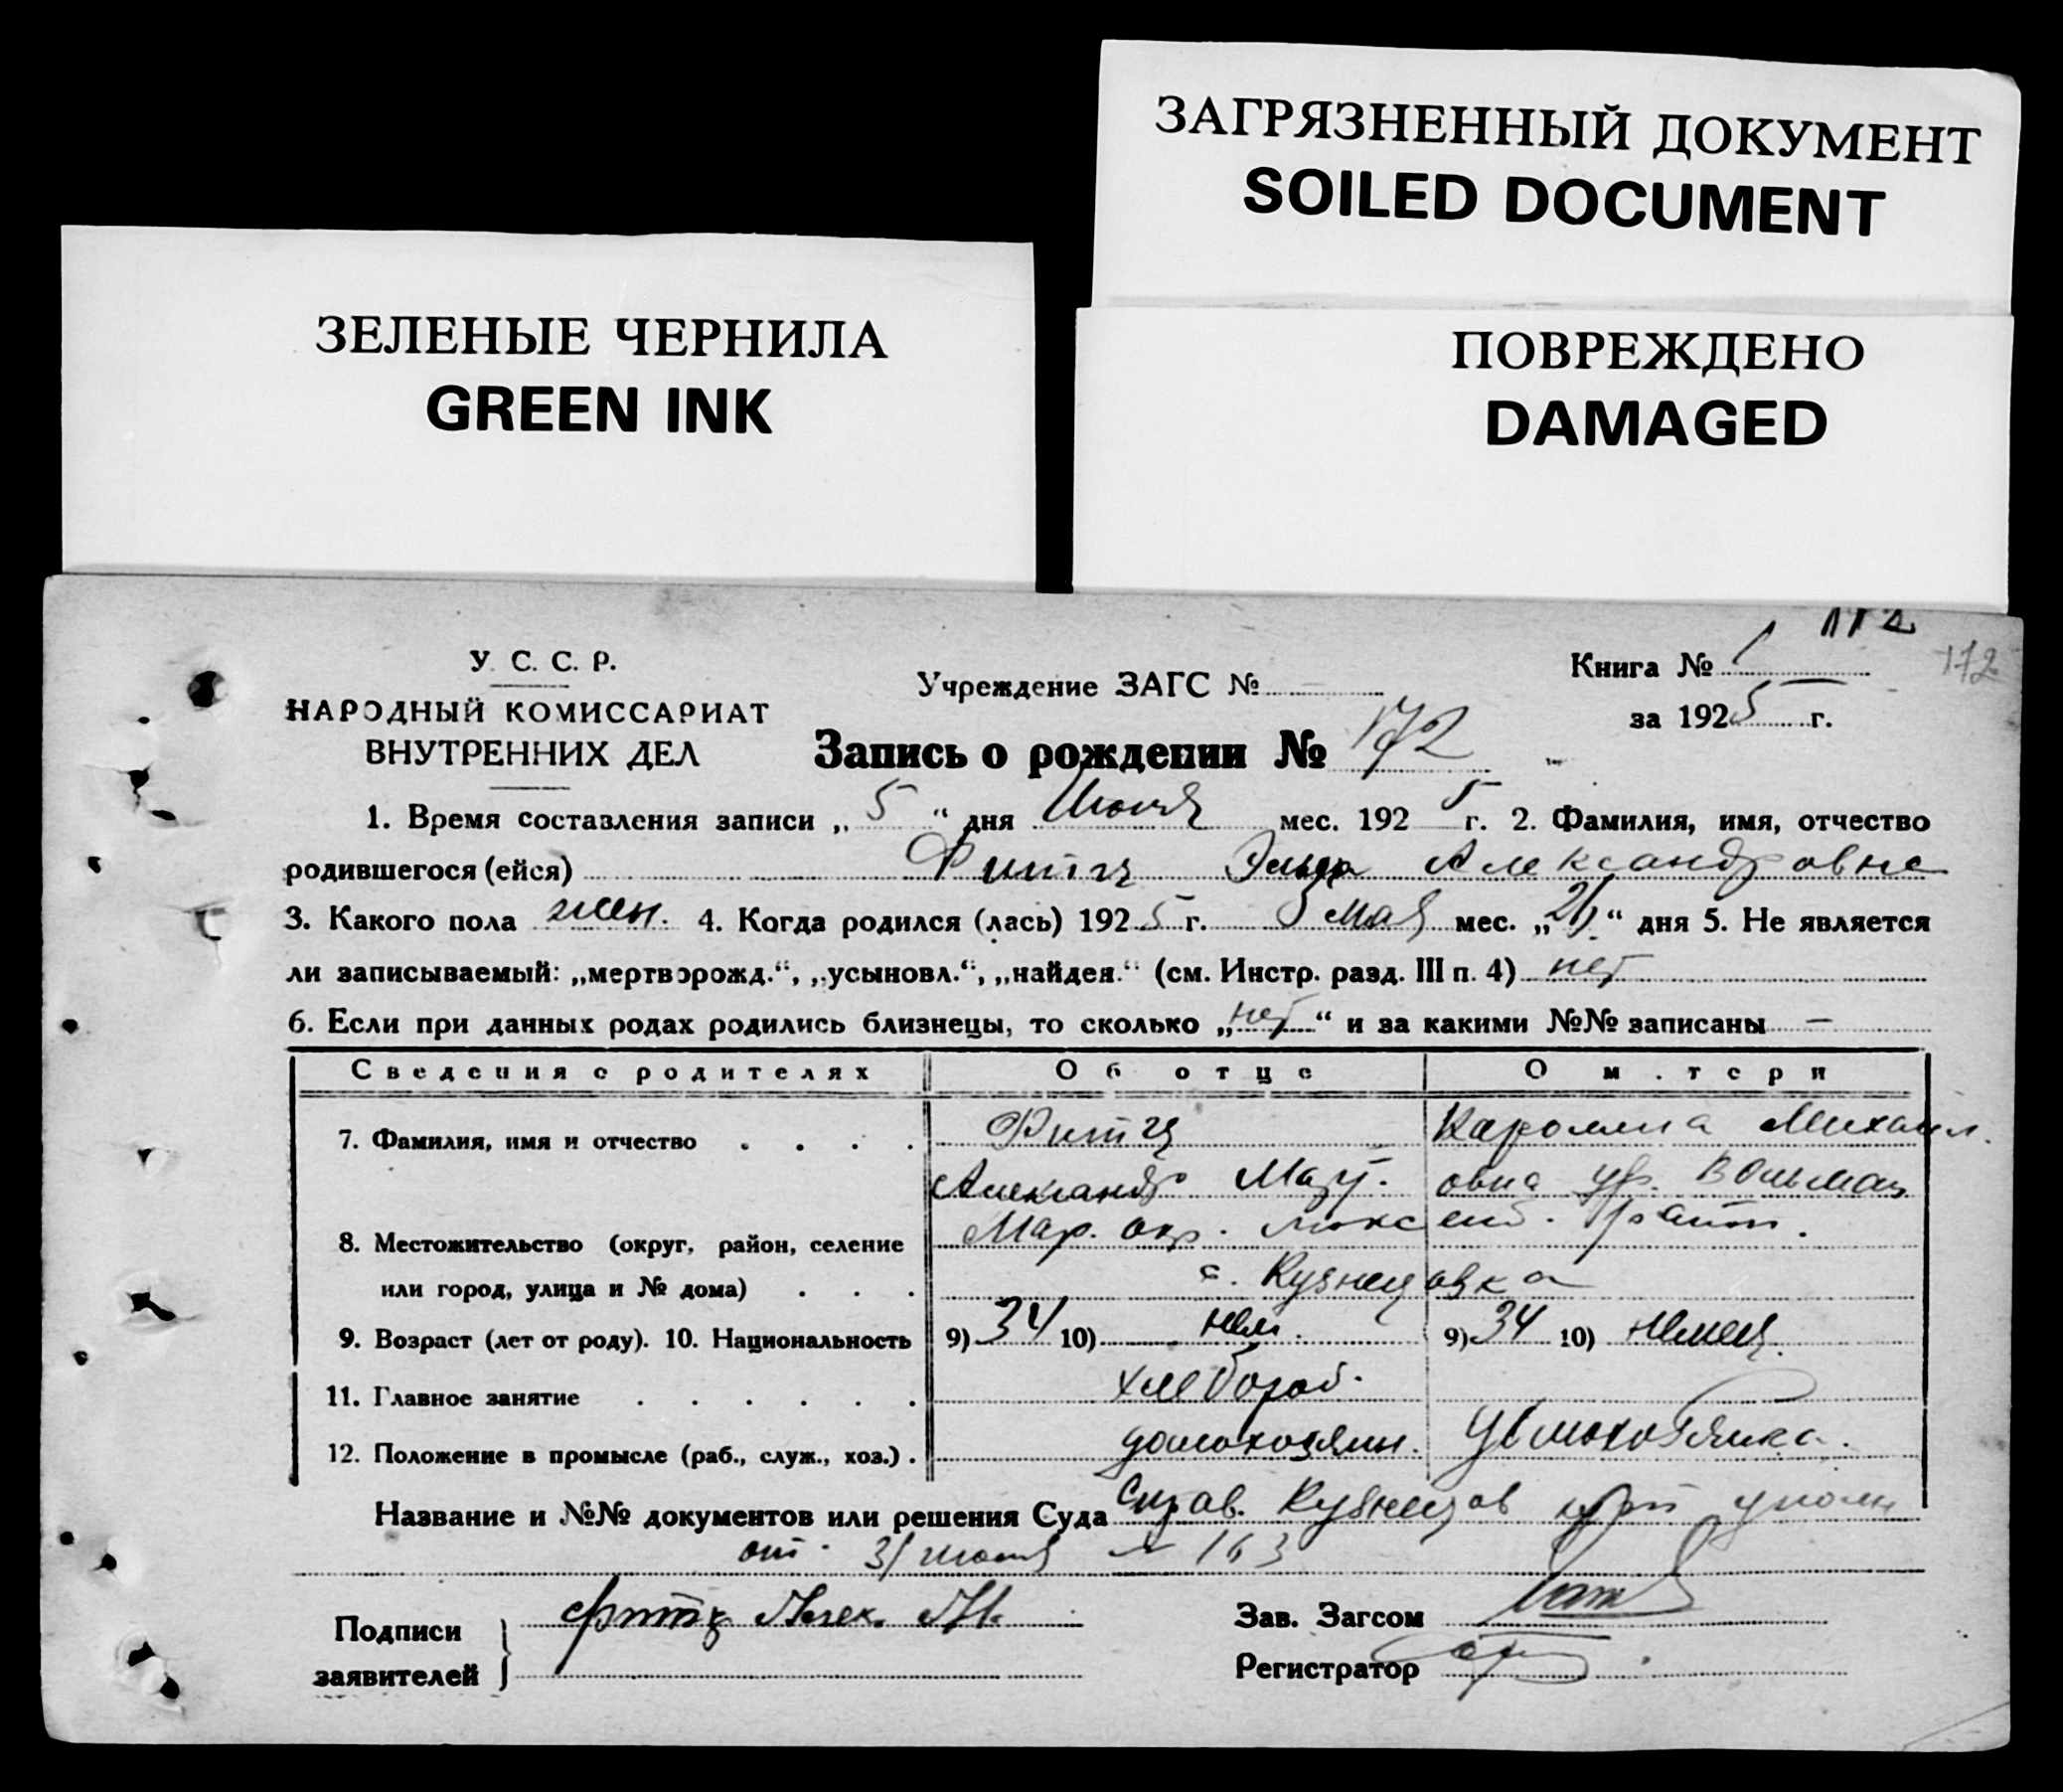 ЗАГРЯЗНЕННЫЙ ДОКУМЕНТ
SOILED DOCUMENT
ЗЕЛЕНЫЕ ЧЕРНИЛА
GREEN INK
ПОВРЕЖДЕНО
DAMAGED
172
У. С. С. Р.
НАРОДНЫЙ КОМИССАРИАТ
ВНУТРЕННИХ ДЕЛ
Учреждение ЗАГС №
Книга № 1
172
за 1925 г.
Запись о рождении № 172
1. Время составления записи „5“ дня Июня мес. 1925 г. 2. Фамилия, имя, отчество
родившегося (ейся) Фитц Эльза Александровна
3. Какого пола жен. 4. Когда родился (лась) 1925 г. Мая мес. „26“ дня 5. Не является
ли записываемый: „мертворожд.“, „усыновл.“, „найден.“ (см. Инстр. разд. III п. 4) нет
6. Если при данных родах родились близнецы, то сколько „нет“ и за какими №№ записаны —
Сведения о родителях Об отце О матери
7. Фамилия, имя и отчество Фитц Каролина Михайл.
Александр Мат. овна ур. Вольман
8. Местожительство (округ, район, селение Мар. окр. Люксемб. район.
или город, улица и № дома) с. Кузнецовка
9. Возраст (лет от роду). 10. Национальность 9) 34 10) нем. 9) 34 10) немец.
11. Главное занятие хлебороб.
12. Положение в промысле (раб., служ., хоз.) домохозяин.
Название и №№ документов или решения Суда Справ. Кузнецов
от 31 № 163
Подписи
заявителей
Фитц Алек. М.
Зав. Загсом
Регистратор